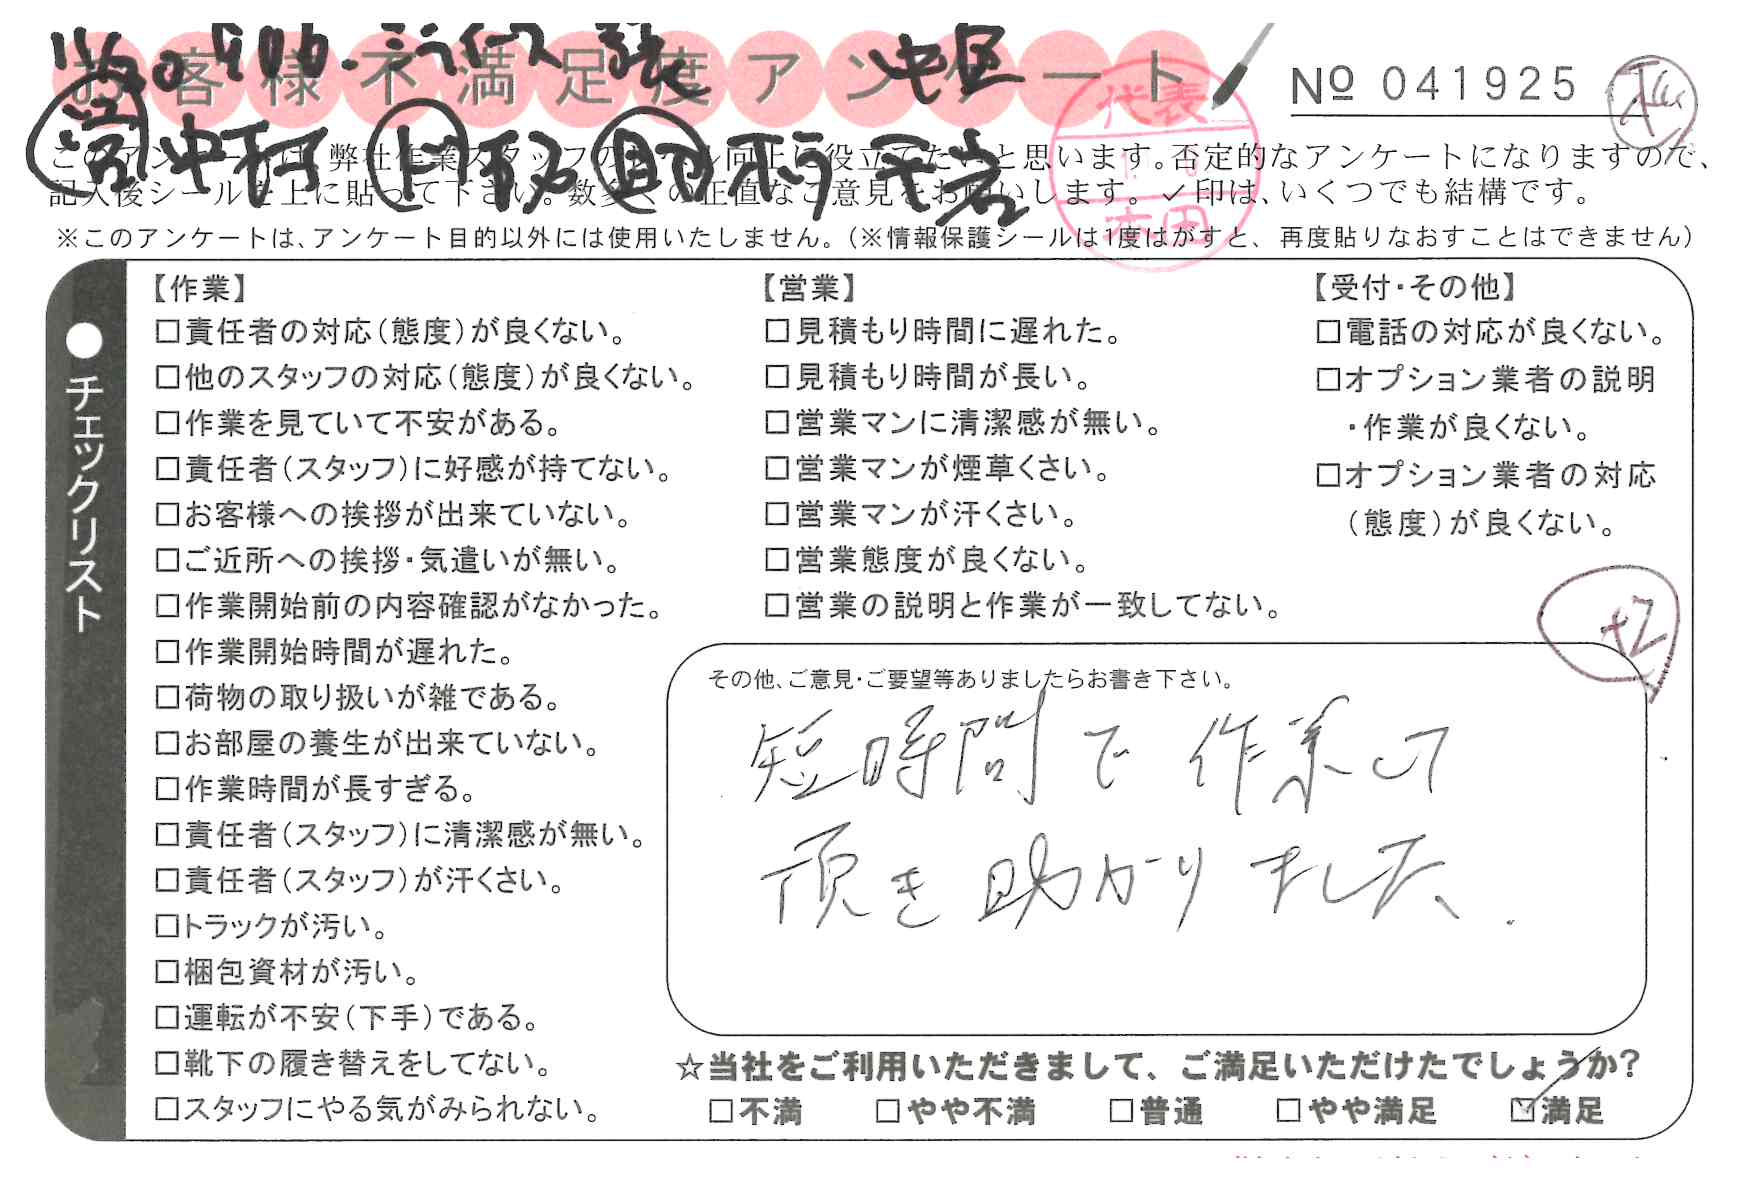 お客様不満足度アンケート
№ 041925
中村
このアンケートは、弊社作業スタッフの向上に役立てたいと思います。否定的なアンケートになりますので、
記入後シールを上に貼って下さい。数多くの正直なご意見をお願いします。✓印は、いくつでも結構です。
代表
本田
※このアンケートは、アンケート目的以外には使用いたしません。(※情報保護シールは1度はがすと、再度貼りなおすことはできません)
●チェックリスト
【作業】
□責任者の対応(態度)が良くない。
□他のスタッフの対応(態度)が良くない。
□作業を見ていて不安がある。
□責任者(スタッフ)に好感が持てない。
□お客様への挨拶が出来ていない。
□ご近所への挨拶・気遣いが無い。
□作業開始前の内容確認がなかった。
□作業開始時間が遅れた。
□荷物の取り扱いが雑である。
□お部屋の養生が出来ていない。
□作業時間が長すぎる。
□責任者(スタッフ)に清潔感が無い。
□責任者(スタッフ)が汗くさい。
□トラックが汚い。
□梱包資材が汚い。
□運転が不安(下手)である。
□靴下の履き替えをしてない。
□スタッフにやる気がみられない。
【営業】
□見積もり時間に遅れた。
□見積もり時間が長い。
□営業マンに清潔感が無い。
□営業マンが煙草くさい。
□営業マンが汗くさい。
□営業態度が良くない。
□営業の説明と作業が一致してない。
【受付・その他】
□電話の対応が良くない。
□オプション業者の説明
・作業が良くない。
□オプション業者の対応
(態度)が良くない。
+2
その他、ご意見・ご要望等ありましたらお書き下さい。
短時間で作業して
頂き助かりました。
☆当社をご利用いただきまして、ご満足いただけたでしょうか?
□不満 □やや不満 □普通 □やや満足 ☑満足